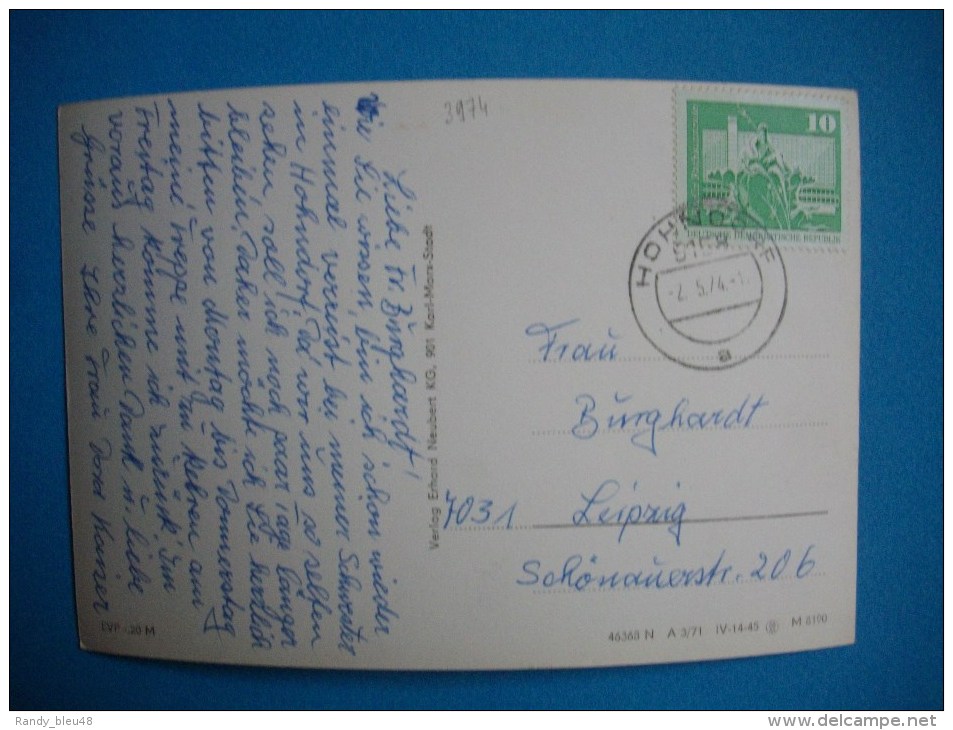 3974
Liebe Fr. Burghardt!
Wie Sie wissen, bin ich schon wieder
einmal vereist bei meiner Schwester
in Hohndorf. Da wir uns so selten
sehen, soll ich noch paar Tage länger
bleiben. Daher möchte ich Sie herzlich
bitten von Montag bis Donnerstag
meine Treppe mit zu kehren am
Freitag komme ich zurück. Im
voraus herzlichen Dank u. liebe
Grüsse Ihre Frau
EVP -,20 M
Verlag Erhard Neubert KG, 901 Karl-Marx-Stadt
10
DEUTSCHE DEMOKRATISCHE REPUBLIK
HOHNDORF
-2.5.74.-
a
Frau
Burghardt
7031 Leipzig
Schönauerstr. 206
46368 N A 3/71 IV-14-45 M 8190
Randy_bleu48